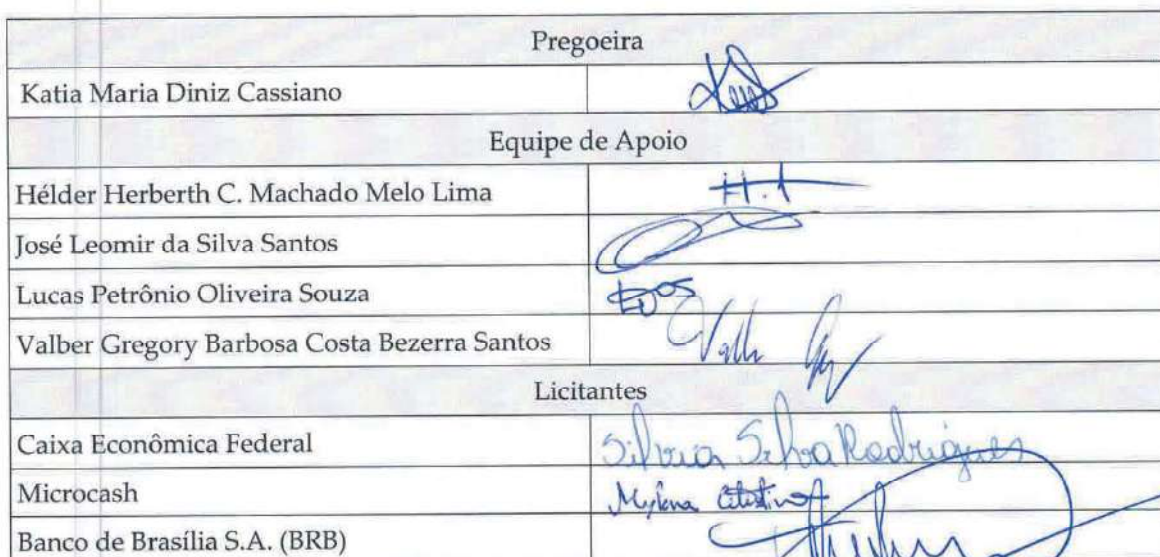 Pregoeira
Katia Maria Diniz Cassiano
Equipe de Apoio
Hélder Herberth C. Machado Melo Lima
José Leomir da Silva Santos
Lucas Petrônio Oliveira Souza
Valber Gregory Barbosa Costa Bezerra Santos
Licitantes
Caixa Econômica Federal Silvia Silva Rodrigues
Microcash
Banco de Brasília S.A. (BRB)